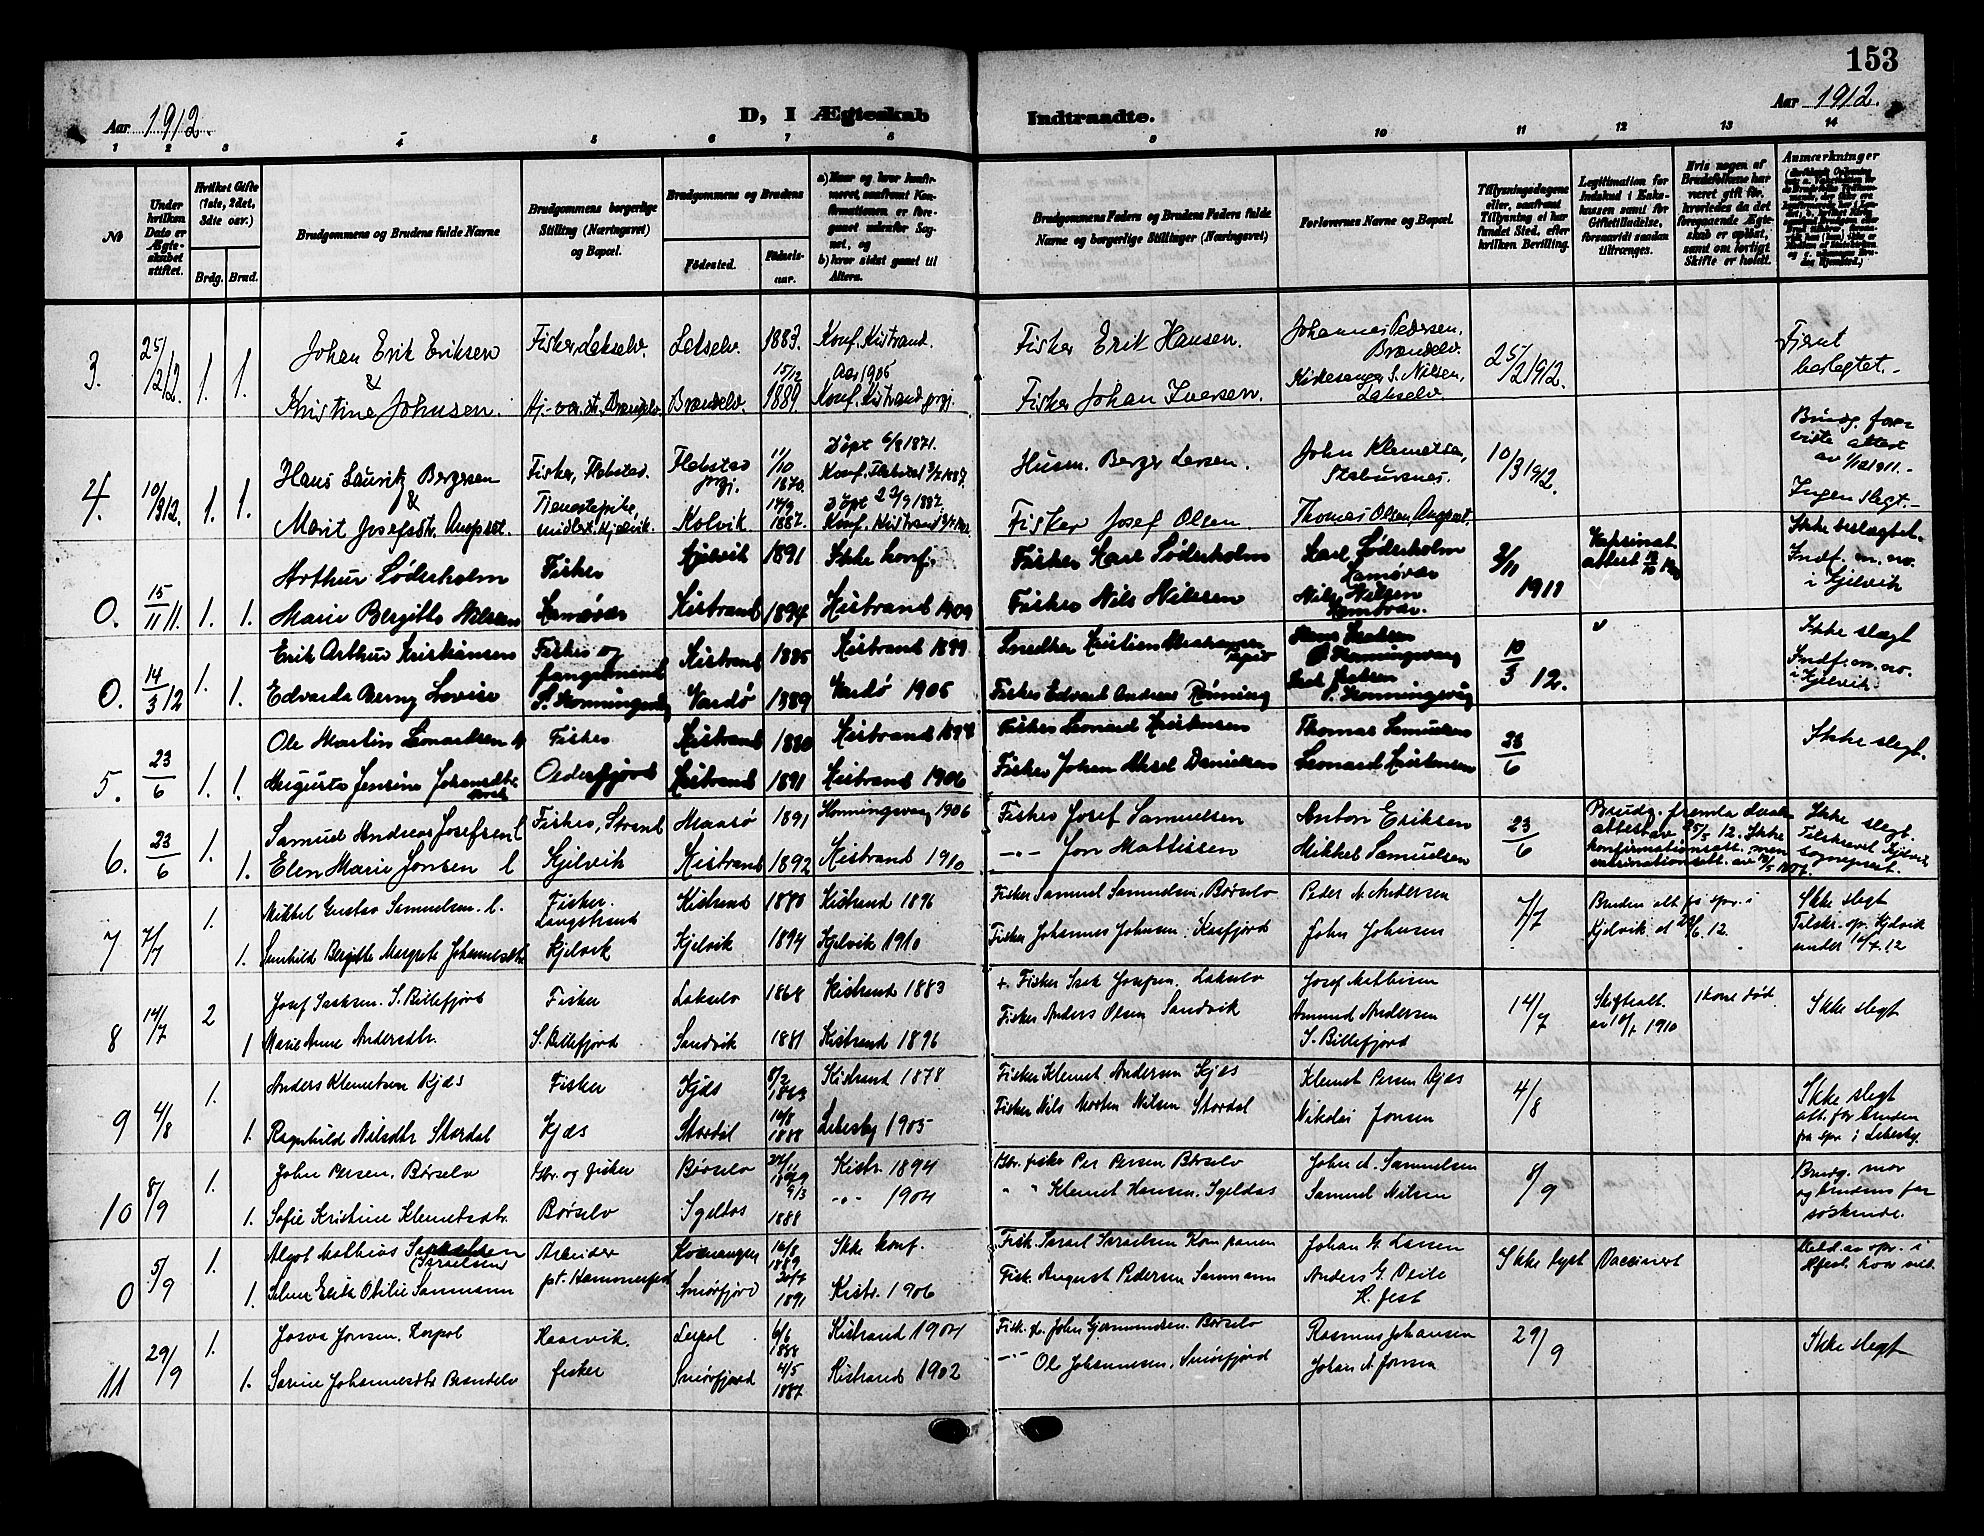 153
Aar 1912.
D, I Ægteskab
Indtraadte.
Aar 1912.
1 2 3 4 5 6 7 8 9 10 11 12 13 14
No
Under hvilken Dato er Ægteskabet stiftet.
Hvilket Gifte (1ste, 2det, 3die osv.)
Brdg. Brud.
Brudgommens og Brudens fulde Navne
Brudgommens borgerlige Stilling (Næringsvei) og Bopæl.
Brudgommens og Brudens
Fødested.
Fødselsaar.
a) Naar og hvor konfirmeret, naafremt Konfirmationen er foregaaet udenfor Sognet, og
b) hvor sidst gaaet til Alters.
Brudgommens Faders og Brudens Faders fulde Navne og borgerlige Stillinger (Næringsvei)
Forlovernes Navne og Bopæl.
Tillysningsdagene eller, naafremt Tillysning ei har fundet Sted, efter hvilken Bevilling.
Legitimation for Indskud i Enkekassen samt for Giftetilladelse, forsaavidt saadan tiltrænges.
Hvis nogen af Brudefolkene har været gift før, hvorledes da det foregaaende Ægteskab er opløst, samt om lovligt Skifte er holdt.
Anmærkninger
3. 25/2 12. 1. 1.
Johan Erik Eriksen
&
Kristine Johnsen.
Fisker, Lakselv.
Lakselv. 1883. Konf. Kistrand.
15/12 Aar 1906
Brændelv 1889. Konf. Kistrand prgj.
Fisker Erik Hansen.
Fisker Johan Iversen.
Johannes Pedersen, Brændelv.
Kirkesanger S. Nilsen, Lakselv.
25/2 1912.
Fjernt beslegtet.
4. 10/3 12. 1. 1.
Hans Lauritz Bergersen
&
Marit Josefsdtr. Anopset.
Fisker, Flebstad.
Tjenestepike, midlert. Kjelvik.
Flebstad prgj. 11/10 1870.
Kolvik 14/9 1887.
Døpt 6/8 1871.
Døpt 22/9 1887.
Husm. Berger Larsen.
Fisker Josef Olsen.
John Klemetsen,
Thomas Olsen, Anopset.
10/3 1912.
Brudg. foreviste attest av 1/12 1911.
Ingen slegt.
0. 15/11 11. 1. 1.
Arthur Søderholm
Marie Bergitte Nilsen
Fisker
Kamøvær
Kjelvik 1891 Ikke konf.
Kistrand 1894 Kistrand 1909
Fisker Karl Søderholm
Fisker Nils Nilsen
Karl Søderholm
Kamøvær
Nils Nilsen
Kamøvær.
3/11 1911
Vaksinatattest
Ikke beslægtet.
Indf. m. no. i Kjelvik
0. 14/3 12 1. 1.
Erik Arthur Kristiansen
Edvarda Berny Lovise
Fisker og fangstmand
S. Honningsvåg
Kistrand 1885 Kistrand 1899
Vardø 1889 Vardø 1905
Snedker Kristian Abrahamsen
Fisker Edvard Andreas Rønning
S. Honningsvaag
S. Honningsvåg
10/3 12.
Ikke slægt
Indf. m. no. i Kjelvik.
5. 23/6 1. 1.
Ole Martin Leonardsen
Augusta Jensine Johansdtr.
Fisker
Olderfjord
Kistrand 1880 Kistrand 1897
Kistrand 1891 Kistrand 1906
Fisker Leonard Kristensen
Fisker Johan Aksel Danielsen
Thomas Samuelsen
Leonard Kristensen
23/6
Ikke slegt.
6. 23/6 1. 1.
Samuel Andreas Josefsen l
Elen Marie Jonsen l
Fisker, Strand
Kjelvik
Maasø 1891 Honningsvaag 1906
Kistrand 1892 Kistrand 1910
Fisker Josef Samuelsen
-"- Jon Mattissen
Anton Eriksen
Mikkel Samuelsen
23/6
Brudg. fremla daabsattest av 25/5 12. Ikke konfirmationsatt. men vaksinationsatt. av
Ikke slegt.
Tilskrevet Kjelvik sogneprest.
7 7/7 1. 1.
Mikkel Gustav Samuelsen. l.
Gunhild Bergitte Margrete Johannesdtr.
Fisker. Langstrand
Kjelvik
Kistrand 1880 Kistrand 1896
Kjelvik 1894 Kjelvik 1910
Fisker Samuel Samuelsen, Børselv
Fisker Johannes Johnsen. Kafjord
Peder A. Andersen
John Johnsen
7/7
Bruden att. fra spr. i Kjelvik d. 28/6. 12.
Ikke slegt
Tilskr. spr. Kjelvik under 16/7. 12
8 14/7 2 1
Josef Isaksen. S. Billefjord
Marie Anne Andersdtr.
Fisker
S. Billefjord
Lakselv 1868 Kistrand 1883
Sandvik 1881 Kistrand 1896
+. Fisker Isak Josefsen. Lakselv
Fisker Anders Olsen Sandvik
Josef Mathisen
Amund Andersen
S. Billefjord
14/7
Skifteatt. av 10/7 1910
1 kone død.
Ikke slegt
9 4/8 1. 1.
Anders Klemetsen Kjæs
Ragnhild Nilsdtr Stordal
Fisker
Kjæs
Kjæs 8/2 1863 Kistrand 1878
Stordal 16/8 1888 Lebesby 1905
Fisker Klemet Andersen Kjæs
Fisker Nils Morten Nilsen Stordal
Klemet Persen Kjæs
Nikolai Jonsen
4/8
Ikke slegt
att. for bruden fra spr. i Lebesby.
10 8/9 1. 1.
John Persen. Børselv
Sofie Kristine Klemetsdtr.
Gbr. og fisker
Børselv
Børselv 27/11 1879 Kistr. 1894
Igeldas 9/3 1888 -"- 1904
Gbr. fisker Per Persen Børselv
" " Klemet Hansen. Igeldas
John A. Samuelsen
Samuel Nilsen
8/9
Brudg. mor og brudens far søskende.
0 5/9 1. 1.
Algot Mathias
(Israelsen)
Selma Erika Otilie Sanmann
Arbeider
pt. Hammerfest
Kvænangen 16/8 1889 Ikke konf.
Smørfjord 20/7 1891 Kistr. 1906
Fisk. Israel Israelsen Kom panen
Fisk. August Pedersen Sanmann
Johan G. Larsen
Anders G. Veile
H. fest
Ikke lyst
Vaccinert
Meld. av spr. i H.fest. hvor viet.
11 29/9 1. 1.
Josva Jonsen. Lerpol
Sarine Johannesdtr Brændelv
Kaarvik.
fisker
Lerpol 6/6 1888 Kistrand 1904
Smørfjord 4/5 1887 Kistrand 1902
Fisk. gl. John Gjermundsen. Børselv
-"- Ole Johannesen, Smørfjord
Rasmus Johansen
Johan A. Jonsen
29/9
Ikke slegt